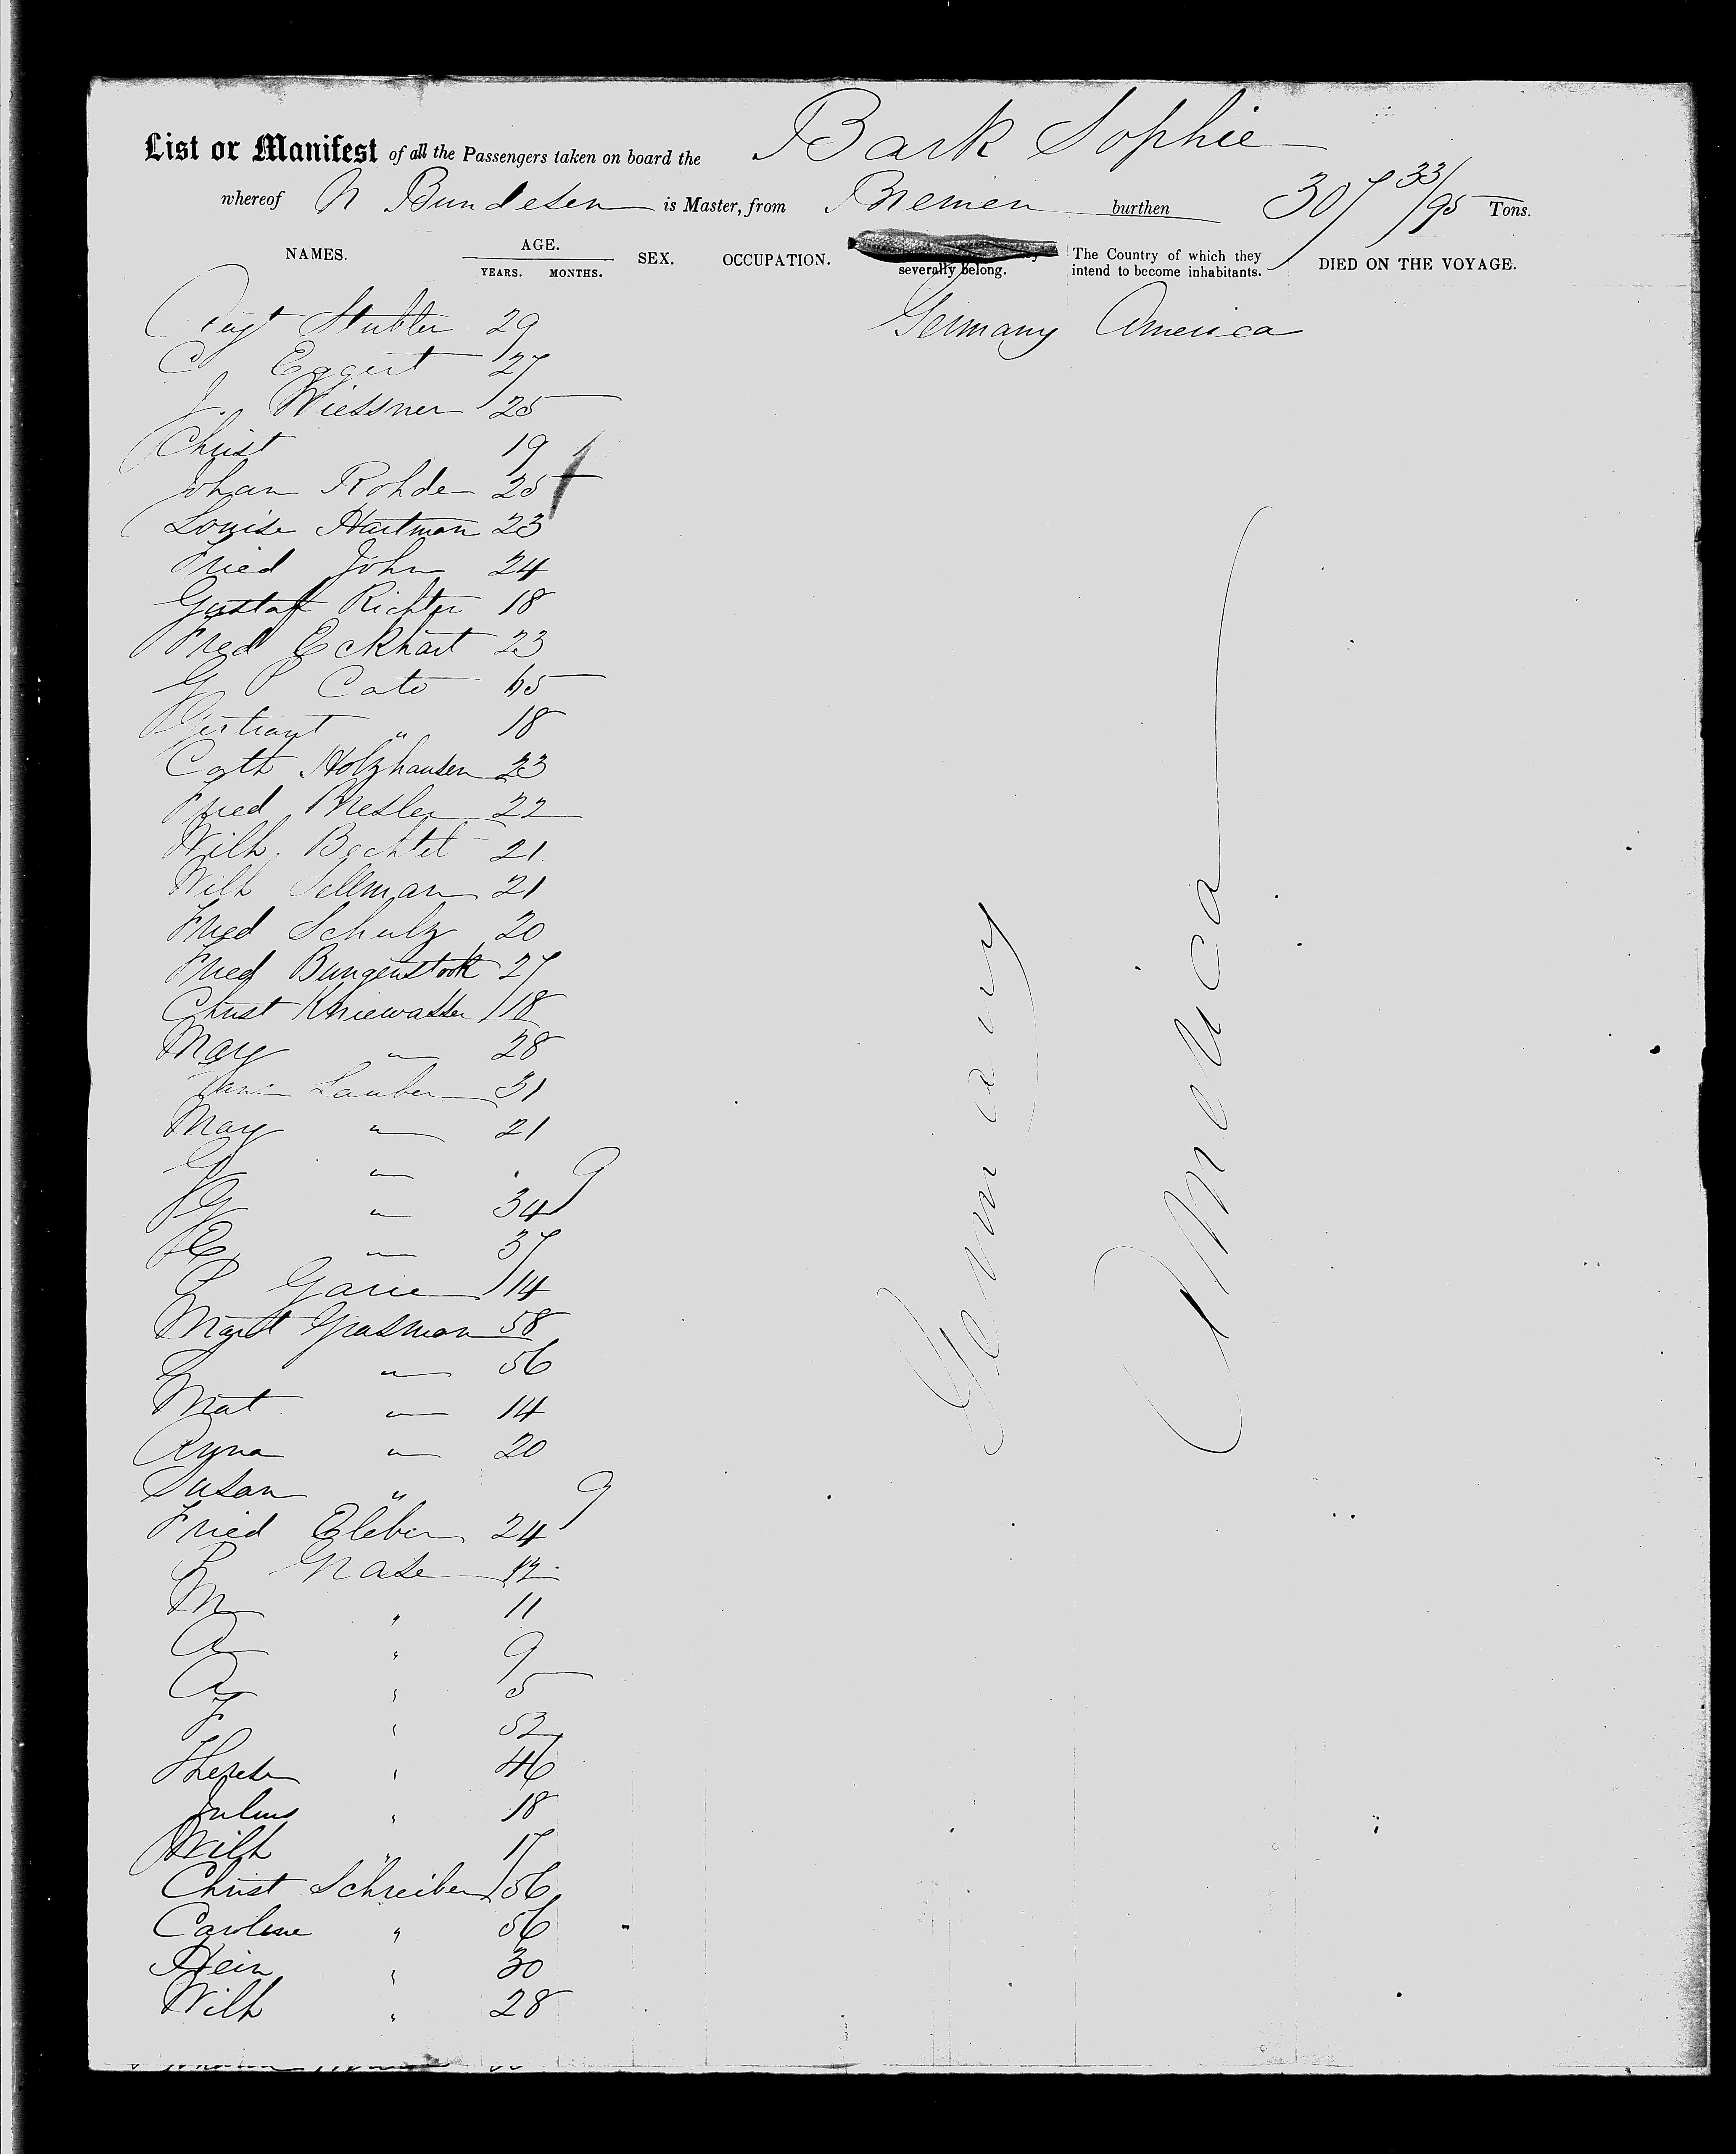 List or Manifest of all the Passengers taken on board the Bark Sophie
whereof N Bundesen is Master, from Bremen burthen 307 33/95 Tons.
NAMES. AGE. YEARS. MONTHS. SEX. OCCUPATION. severally belong. The Country of which they intend to become inhabitants. DIED ON THE VOYAGE.
Augt Stubler 29 Germany America
C Eggert 27
J. Wiessner 25
Christ 19
Johan Rohde 25
Louise Hartman 23
Fried John 24
Gustaf Richter 18
Fred Eckhart 23
G P Cato 65
" 18
Cath Holzhausen 23
Fried Bresler 22
Wilh. Bechtel 21
Wilh Sellman 21
Fried Schulz 20
Fried Bungenstock 27
Christ Kniewasser 18
Mary " 28
Lauber 31
Mary " 21
G " 9
G " 34
E " 37
P Garie 14
Margt Grasman 58
" 56
Mat " 14
Anna " 20
Susan " 9
Fried Eleber 24
P Nase 12
M " 11
A " 9
A " 5
F " 52
Therese " 46
Julius " 18
Wilh " 17
Christ Schreiber 56
Caroline " 56
Hein " 30
Wilh " 28
Germany
America